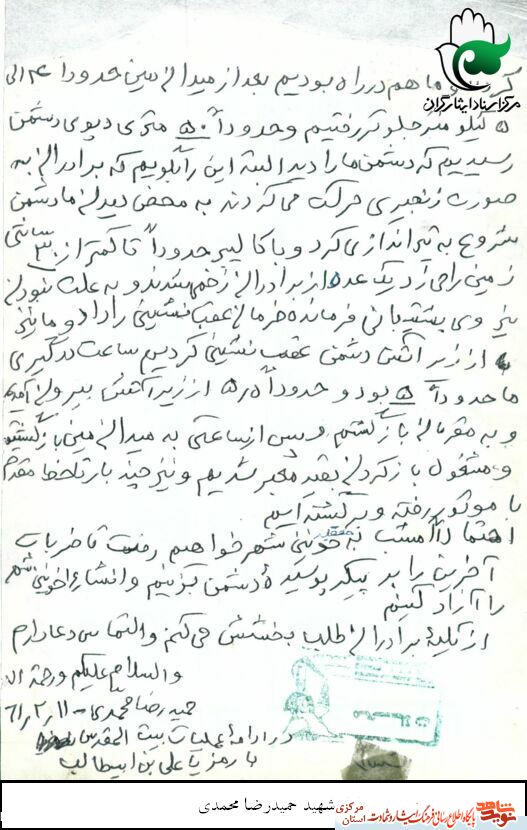 مرکز اسناد ایثارگران
و ما هم در راه بودیم بعد از میدان مین حدوداً ۴ الی
۵ کیلومتر جلوتر رفتیم و حدوداً ۵۰ متری دپوی دشمن
رسیدیم که دشمن ما را دید البته این را بگویم که برادران به
صورت زنجیری حرکت می کردند به محض دیدن ما دشمن
شروع به تیراندازی کرد و با کالیبر حدوداً تا کمتر از ۳۰ سانتی
زمین را می زد یک عده از برادران زخمی شدند و به علت نبودن
نیروی پشتیبانی فرمانده فرمان عقب نشینی را داد و ما نیز
از زیر آتش دشمن عقب نشینی کردیم ساعت درگیری
ما حدوداً ۵ بود و حدوداً ۵/۵ از زیر آتش بیرون آمدیم
و به مقرمان بازگشتیم و پس از ساعتی به میدان مین بازگشتیم
و مشغول باز کردن بقیه معبر شدیم و نیز چند بار تا خط مقدم
با موتور رفته و برگشته ایم
احتمالاً امشب به خونین شهر خواهیم رفت تا ضربات
آخرین را بر پیکر پوسیدهٔ دشمن بزنیم و انشاءا... خونین شهر
را آزاد کنیم
از کلیهٔ برادران طلب بخشش می کنم و التماس دعا دارم
والسلام علیکم و رحمة ال...
حمیدرضا محمدی - ۶۱/۲/۱۱
در ادامهٔ عملیات بیت المقدس
با رمز یا علی بن ابیطالب
شهید حمیدرضا محمدی
نوید شاهد
پایگاه اطلاع رسانی فرهنگ ایثار و شهادت استان مرکزی